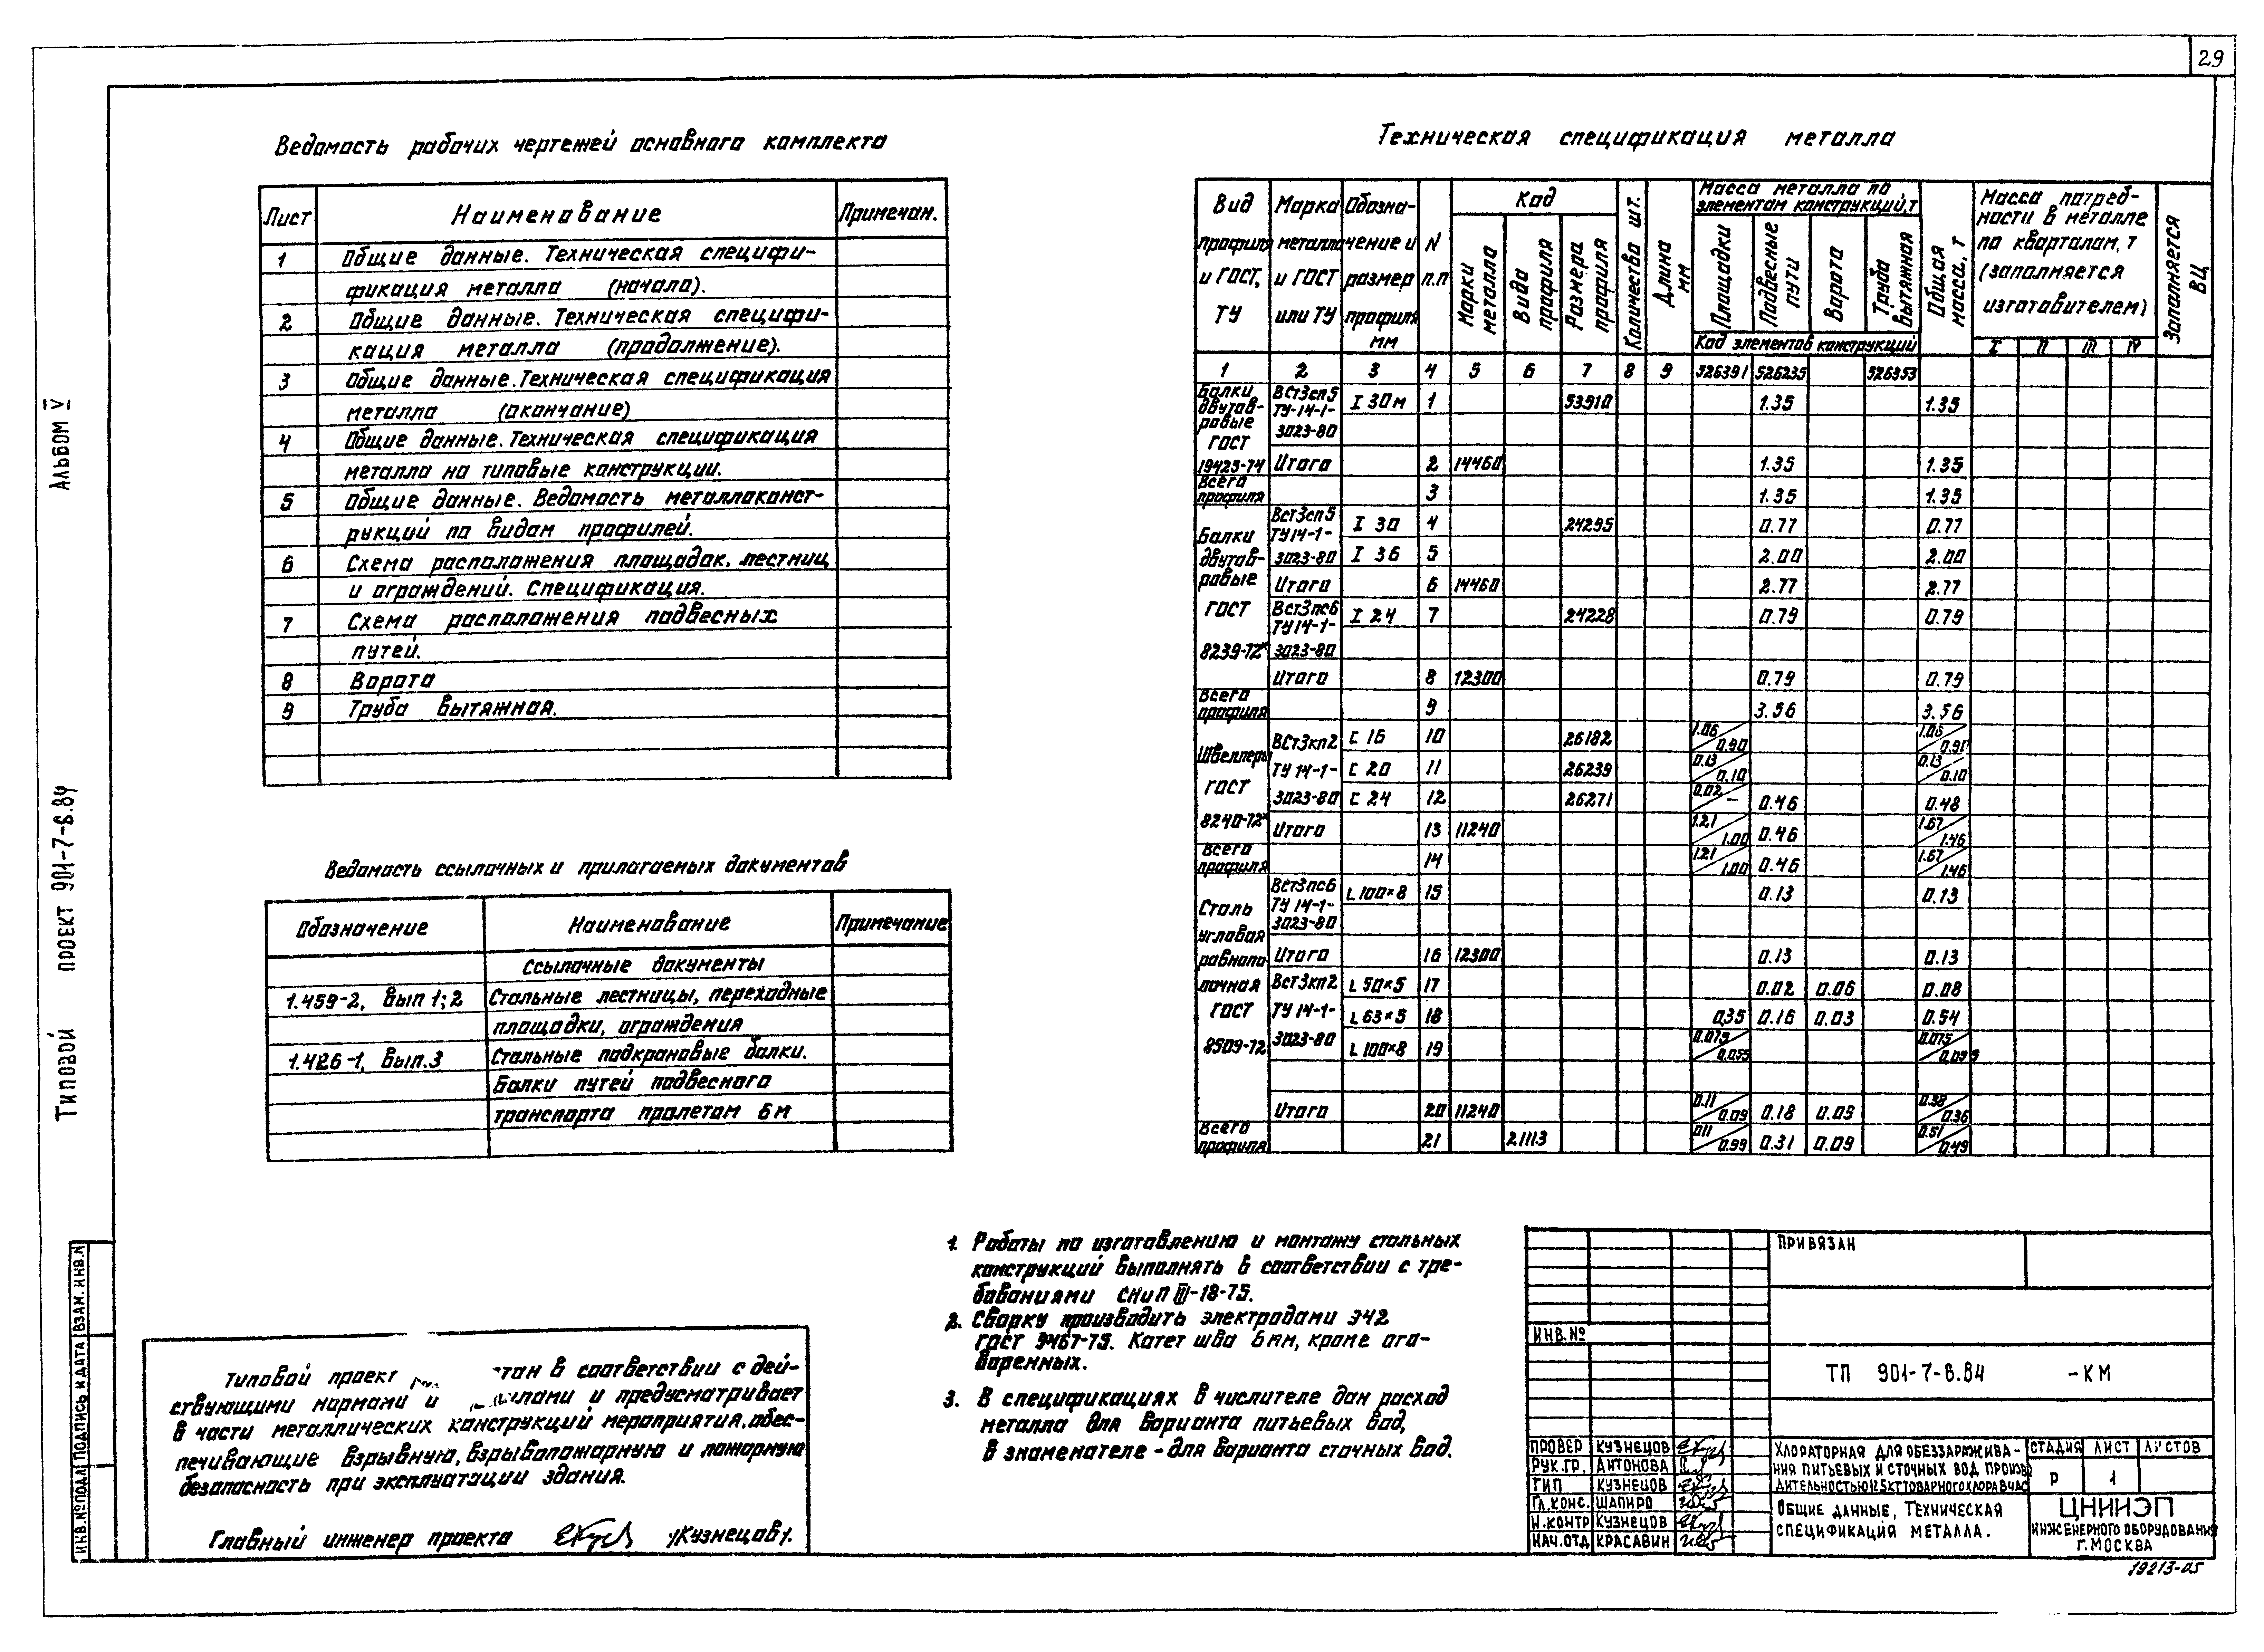 29
Альбом V
Типовой проект 901-7-8.84
Ведомость рабочих чертежей основного комплекта
Лист Наименование Примечан.
1 Общие данные. Техническая специфи-
фикация металла (начало).
2 Общие данные. Техническая специфи-
кация металла (продолжение).
3 Общие данные. Техническая спецификация
металла (окончание)
4 Общие данные. Техническая спецификация
металла на типовые конструкции.
5 Общие данные. Ведомость металлоконст-
рукций по видам профилей.
6 Схема расположения площадок, лестниц
и ограждений. Спецификация.
7 Схема расположения подвесных
путей.
8 Ворота
9 Труба вытяжная.
Ведомость ссылочных и прилагаемых документов
Обозначение Наименование Примечание
Ссылочные документы
1.459-2, вып 1;2 Стальные лестницы, переходные
площадки, ограждения
1.426-1, вып.3 Стальные подкрановые балки.
Балки путей подвесного
транспорта пролетом 6м
Техническая спецификация металла
Вид профиля и ГОСТ, ТУ
Марка металла и ГОСТ или ТУ
Обозначение и размер профиля мм
N п.п
Код
Марки металла
Вида профиля
Размера профиля
Количество шт.
Длина мм
Масса металла по элементам конструкций, т
Площадки
Подвесные пути
Ворота
Труба вытяжная
Код элементов конструкций
Общая масса, т
Масса потреб-
ности в металле
по кварталам, т
(заполняется
изготовителем)
I II III IV
Заполняется ВЦ
1 2 3 4 5 6 7 8 9 526391 526235 526353
Балки двутавровые ГОСТ 19425-74
ВСт3сп5 ТУ-14-1-3023-80 I 30м 1 53910 1.35 1.35
Итого 2 14460 1.35 1.35
Всего профиля 3 1.35 1.35
Балки двутавровые ГОСТ 8239-72*
ВСт3сп5 ТУ14-1-3023-80 I 30 4 24295 0.77 0.77
I 36 5 2.00 2.00
Итого 6 14460 2.77 2.77
ВСт3пс6 ТУ14-1-3023-80 I 24 7 24228 0.79 0.79
Итого 8 12300 0.79 0.79
Всего профиля 9 3.56 3.56
Швеллеры ГОСТ 8240-72*
ВСт3кп2 ТУ 14-1-3023-80 С 16 10 26182 1.06/0.90 1.06/0.90
С 20 11 26239 0.13/0.10 0.13/0.10
С 24 12 26271 0.02/— 0.46 0.48
Итого 13 11240 1.21/1.00 0.46 1.67/1.46
Всего профиля 14 1.21/1.00 0.46 1.67/1.46
Сталь угловая равнополочная ГОСТ 8509-72
ВСт3пс6 ТУ 14-1-3023-80 L 100×8 15 0.13 0.13
Итого 16 12300 0.13 0.13
ВСт3кп2 ТУ 14-1-3023-80 L 50×5 17 0.02 0.06 0.08
L 63×5 18 0,35 0.16 0.03 0.54
L 100×8 19 0.075/0.055 0.075/
Итого 20 11240 0.11/0.09 0.18 0.09 0.38/0.36
Всего профиля 21 21113 0.11/0.99 0.31 0.09 0.51/0.49
1. Работы по изготовлению и монтажу стальных
конструкций выполнять в соответствии с тре-
бованиями СНиП III-18-75.
2. Сварку производить электродами Э42
ГОСТ 9467-75. Катет шва 6мм, кроме ого-
воренных.
3. В спецификациях в числителе дан расход
металла для варианта питьевых вод,
в знаменателе - для варианта сточных вод.
Типовой проект тан в соответствии с дей-
ствующими нормами и илами и предусматривает
в части металлических конструкций мероприятия, обес-
печивающие взрывную, взрывопожарную и пожарную
безопасность при эксплуатации здания.
Главный инженер проекта /Кузнецов/.
Инв.№подл Подпись и дата Взам. инв.N
ПРИВЯЗАН
ИНВ.№
ТП 901-7-8.84 -КМ
ПРОВЕР КУЗНЕЦОВ
РУК.ГР. АНТОНОВА
ГИП КУЗНЕЦОВ
ГЛ.КОНС. ШАПИРО
Н.КОНТР КУЗНЕЦОВ
НАЧ.ОТД КРАСАВИН
ХЛОРАТОРНАЯ ДЛЯ ОБЕЗЗАРАЖИВА-
НИЯ ПИТЬЕВЫХ И СТОЧНЫХ ВОД ПРОИЗВО
ДИТЕЛЬНОСТЬЮ 12.5 КГ ТОВАРНОГО ХЛОРА В ЧАС
СТАДИЯ ЛИСТ ЛИСТОВ
Р 1
ОБЩИЕ ДАННЫЕ, ТЕХНИЧЕСКАЯ
СПЕЦИФИКАЦИЯ МЕТАЛЛА.
ЦНИИЭП
ИНЖЕНЕРНОГО ОБОРУДОВАНИЯ
Г. МОСКВА
19213-05